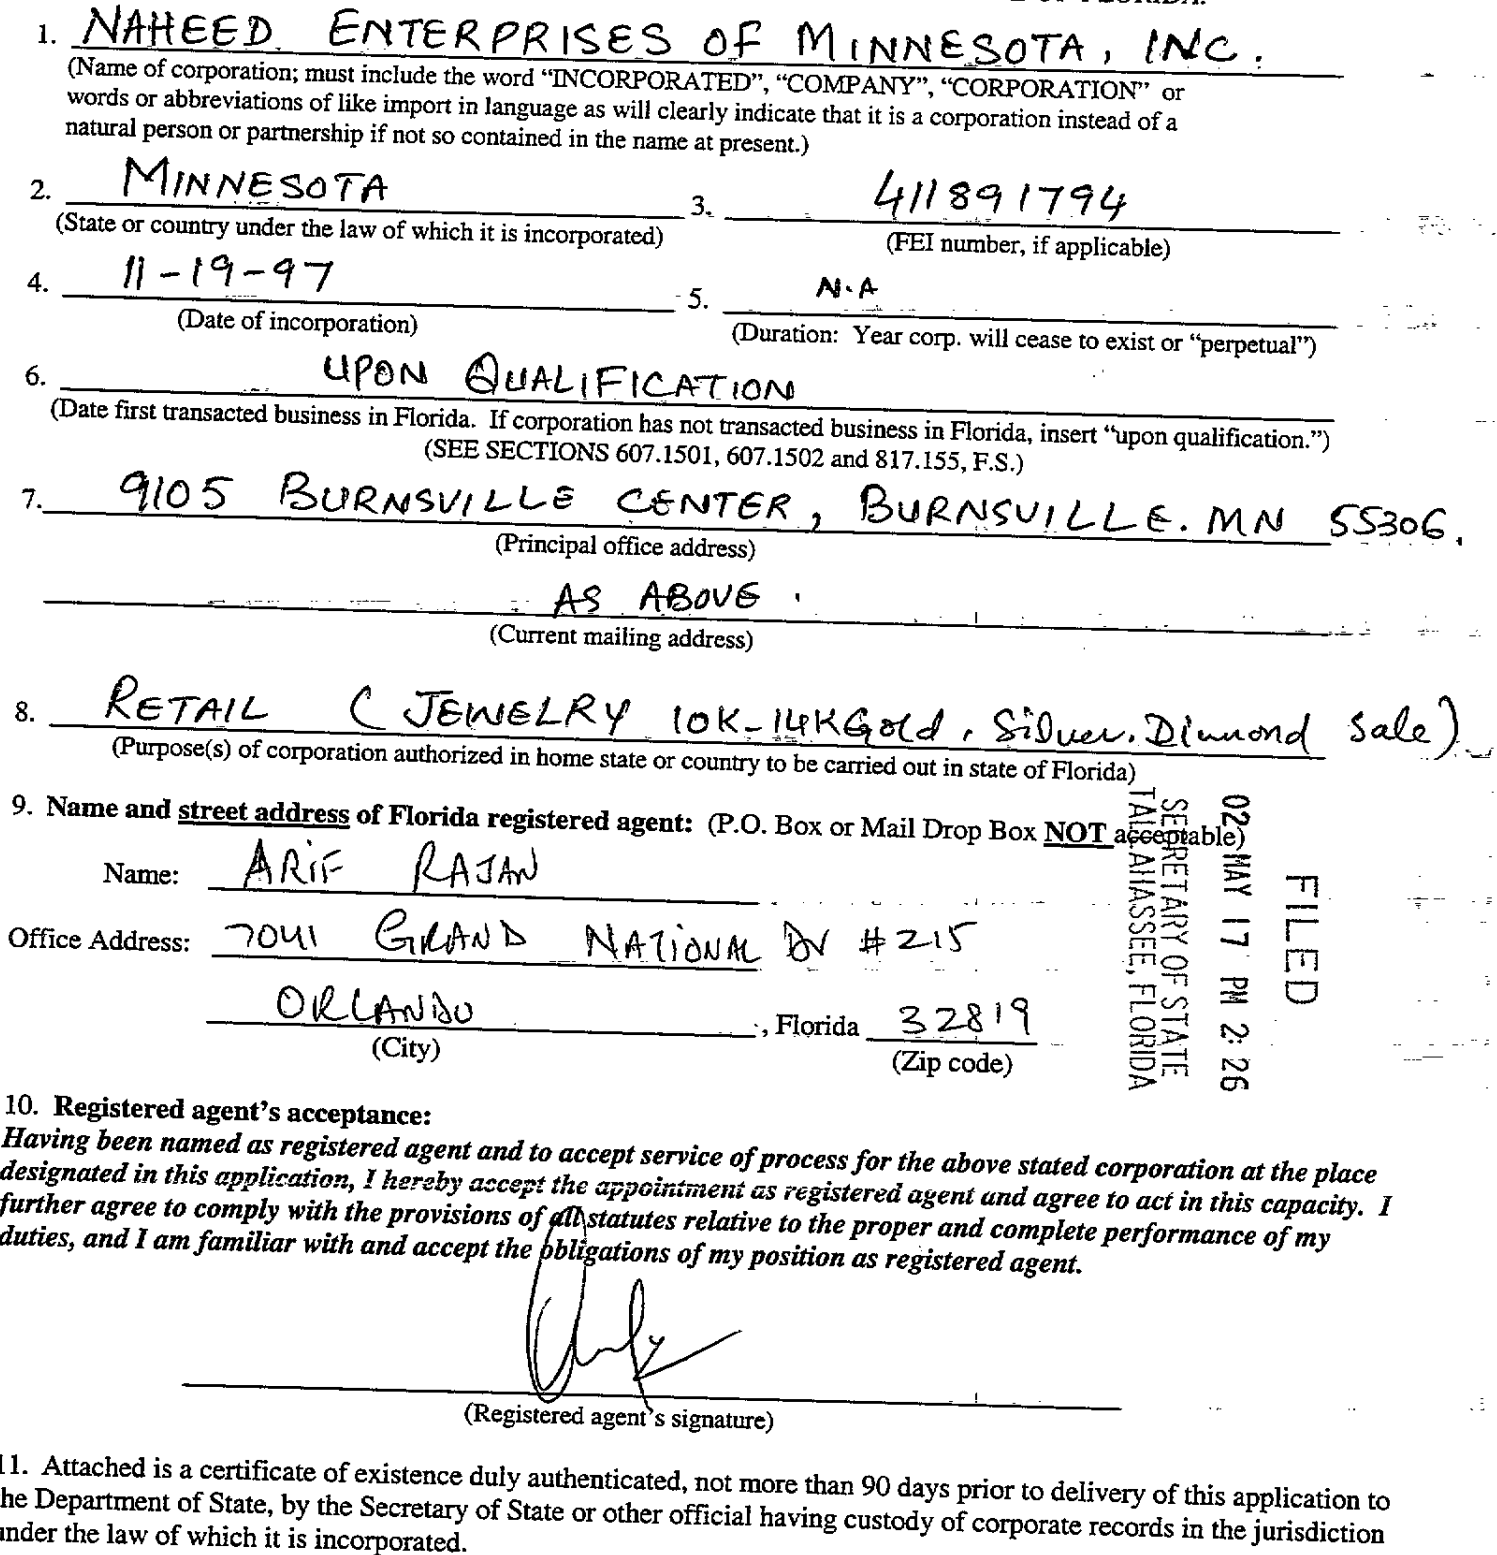 1. NAHEED ENTERPRISES OF MINNESOTA, INC.
(Name of corporation; must include the word “INCORPORATED”, “COMPANY”, “CORPORATION” or
words or abbreviations of like import in language as will clearly indicate that it is a corporation instead of a
natural person or partnership if not so contained in the name at present.)
2. MINNESOTA 3. 411891794
(State or country under the law of which it is incorporated) (FEI number, if applicable)
4. 11-19-97 5. N.A
(Date of incorporation) (Duration: Year corp. will cease to exist or “perpetual”)
6. UPON QUALIFICATION
(Date first transacted business in Florida. If corporation has not transacted business in Florida, insert “upon qualification.”)
(SEE SECTIONS 607.1501, 607.1502 and 817.155, F.S.)
7. 9105 BURNSVILLE CENTER, BURNSVILLE. MN 55306.
(Principal office address)
AS ABOVE.
(Current mailing address)
8. RETAIL ( JEWELRY 10K-14K Gold, Silver, Dimond Sale)
(Purpose(s) of corporation authorized in home state or country to be carried out in state of Florida)
9. Name and street address of Florida registered agent: (P.O. Box or Mail Drop Box NOT acceptable)
Name: ARIF RAJAN
Office Address: 7041 GRAND NATIONAL DV #215
ORLANDO, Florida 32819
(City) (Zip code)
FILED
02 MAY 17 PM 2:26
SECRETARY OF STATE
TALLAHASSEE, FLORIDA
10. Registered agent’s acceptance:
Having been named as registered agent and to accept service of process for the above stated corporation at the place
designated in this application, I hereby accept the appointment as registered agent and agree to act in this capacity. I
further agree to comply with the provisions of all statutes relative to the proper and complete performance of my
duties, and I am familiar with and accept the obligations of my position as registered agent.
(Registered agent’s signature)
11. Attached is a certificate of existence duly authenticated, not more than 90 days prior to delivery of this application to
he Department of State, by the Secretary of State or other official having custody of corporate records in the jurisdiction
under the law of which it is incorporated.